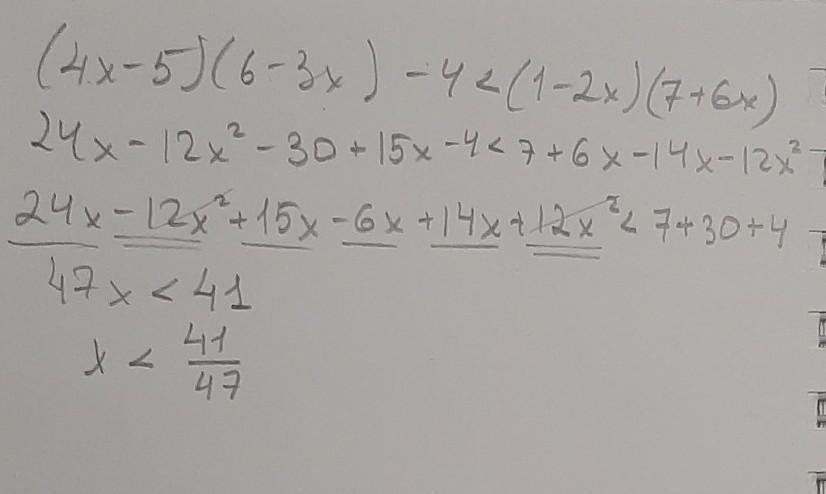 (4x-5)(6-3x) -4<(1-2x)(7+6x)
24x-12x²-30+15x-4<7+6x-14x-12x²
24x-12x²+15x-6x+14x+12x²<7+30+4
47x<41
x < 41/47